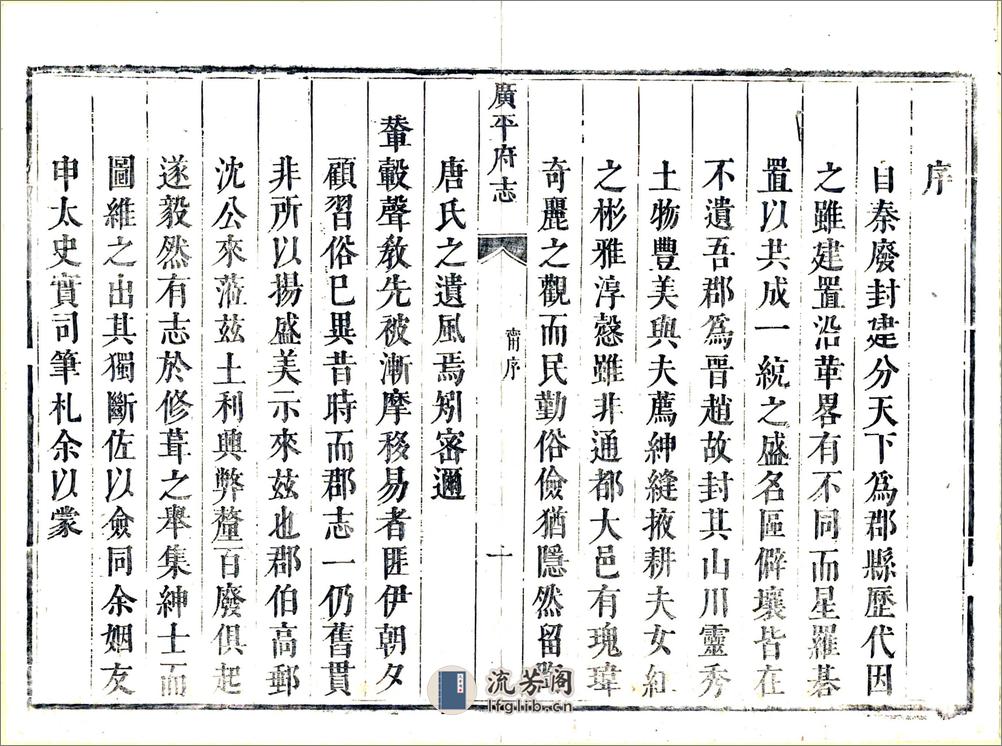 序
自秦廢封建分天下爲郡縣歷代因
之雖建置沿革畧有不同而星羅碁
置以共成一統之盛名區僻壤皆在
不遺吾郡爲晋趙故封其山川靈秀
土物豐美與夫薦紳縫掖耕夫女紅
之彬雅淳慤雖非通都大邑有瑰瑋
奇麗之觀而民勤俗儉猶隱然留
廣平府志
齊序
一
唐氏之遺風焉矧密邇
輦轂聲敎先被漸摩移易者匪伊朝夕
顧習俗已異昔時而郡志一仍舊貫
非所以揚盛美示來玆也郡伯高郵
沈公來蒞玆土利興弊釐百廢俱起
遂毅然有志於修葺之舉集紳士而
圖維之出其獨斷佐以僉同余姻友
申太史實司筆札余以蒙
流芳阁
lfglib.cn